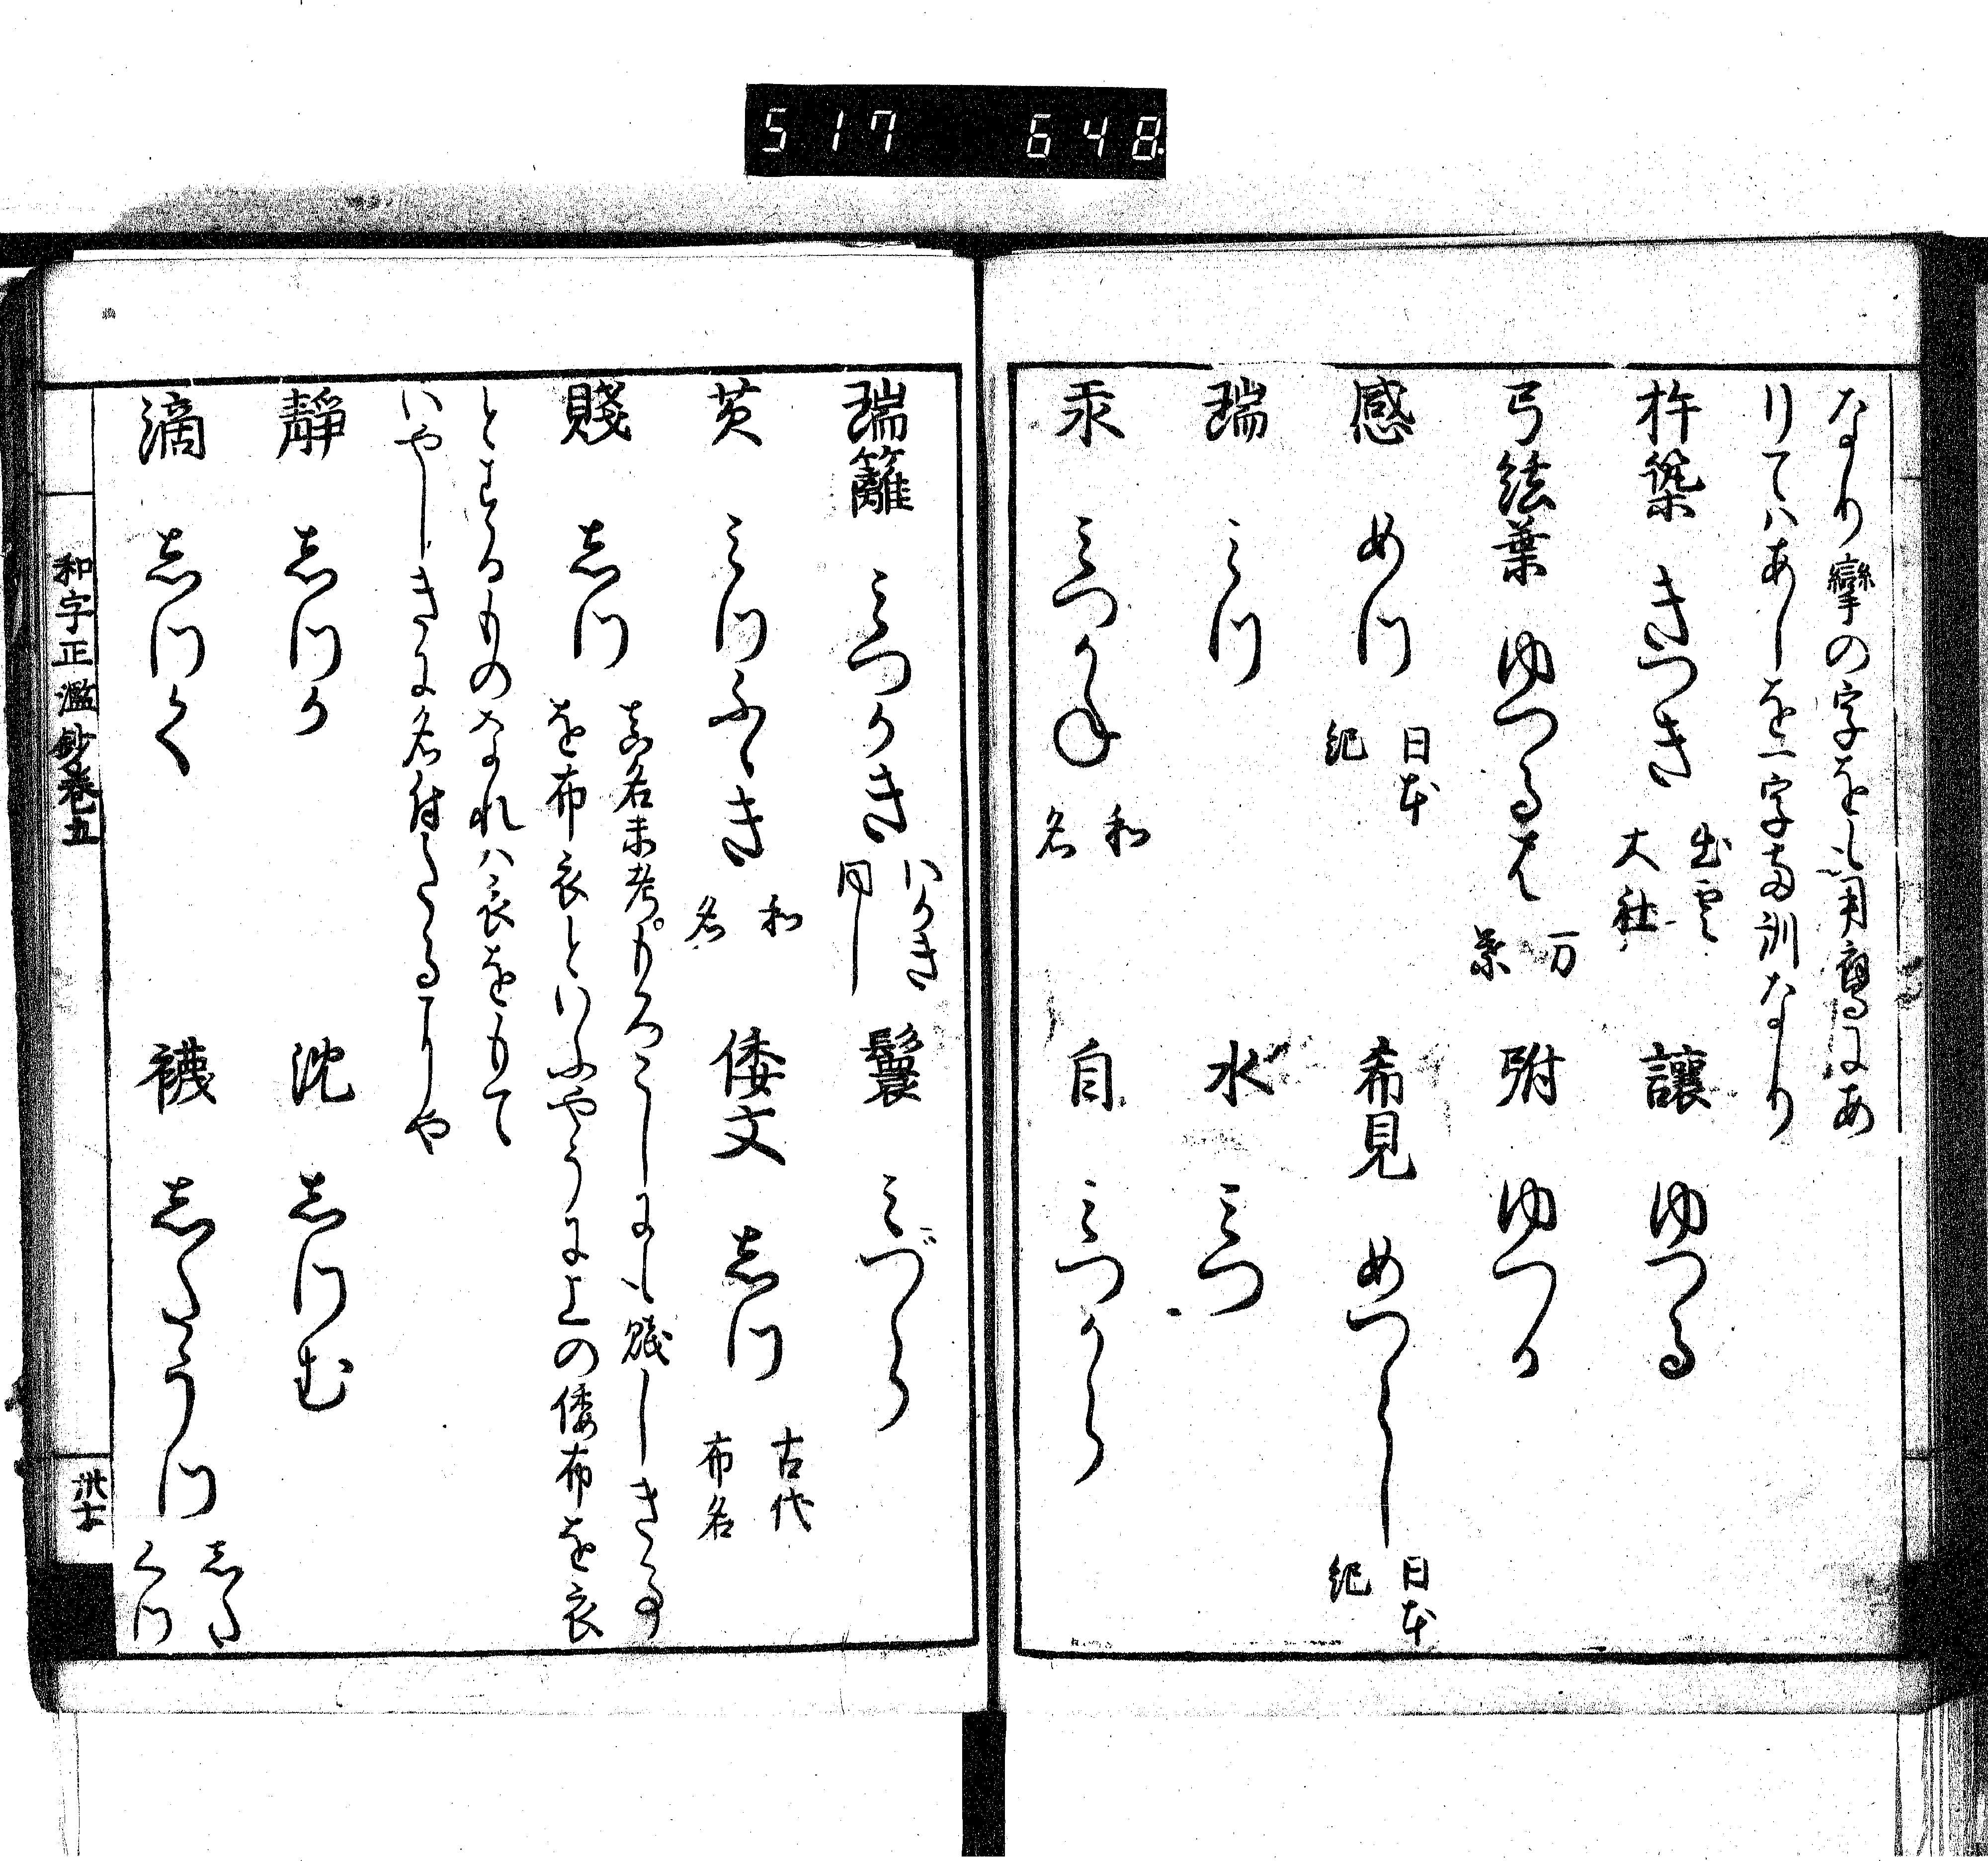 517 648
なり攣の字をも用鷹にあ
りてはあしを一字両訓なり
杵築 きつき 出雲大社 讓 ゆつる
弓絃葉 ゆつるは 万葉 弣 ゆつる
感 めつ 日本紀 希見 めつらし 日本紀
瑞 みつ 水 みつ
汞 みつかね 和名 自 みつから
瑞籬 みつかき いかき同し 鬟 みづら
芡 みつふゝき 和名 倭文 しつ 古代布名
賤 しつ 真名未考もろこしにも賤しきを布衣といふやうに上の倭布を衣
とするものなれハ衣をもて
いやしきに名付たるにや
靜 しつか 沈 しつむ
滴 しつく 襪 したうつ したくつ
和字正濫鈔巻五